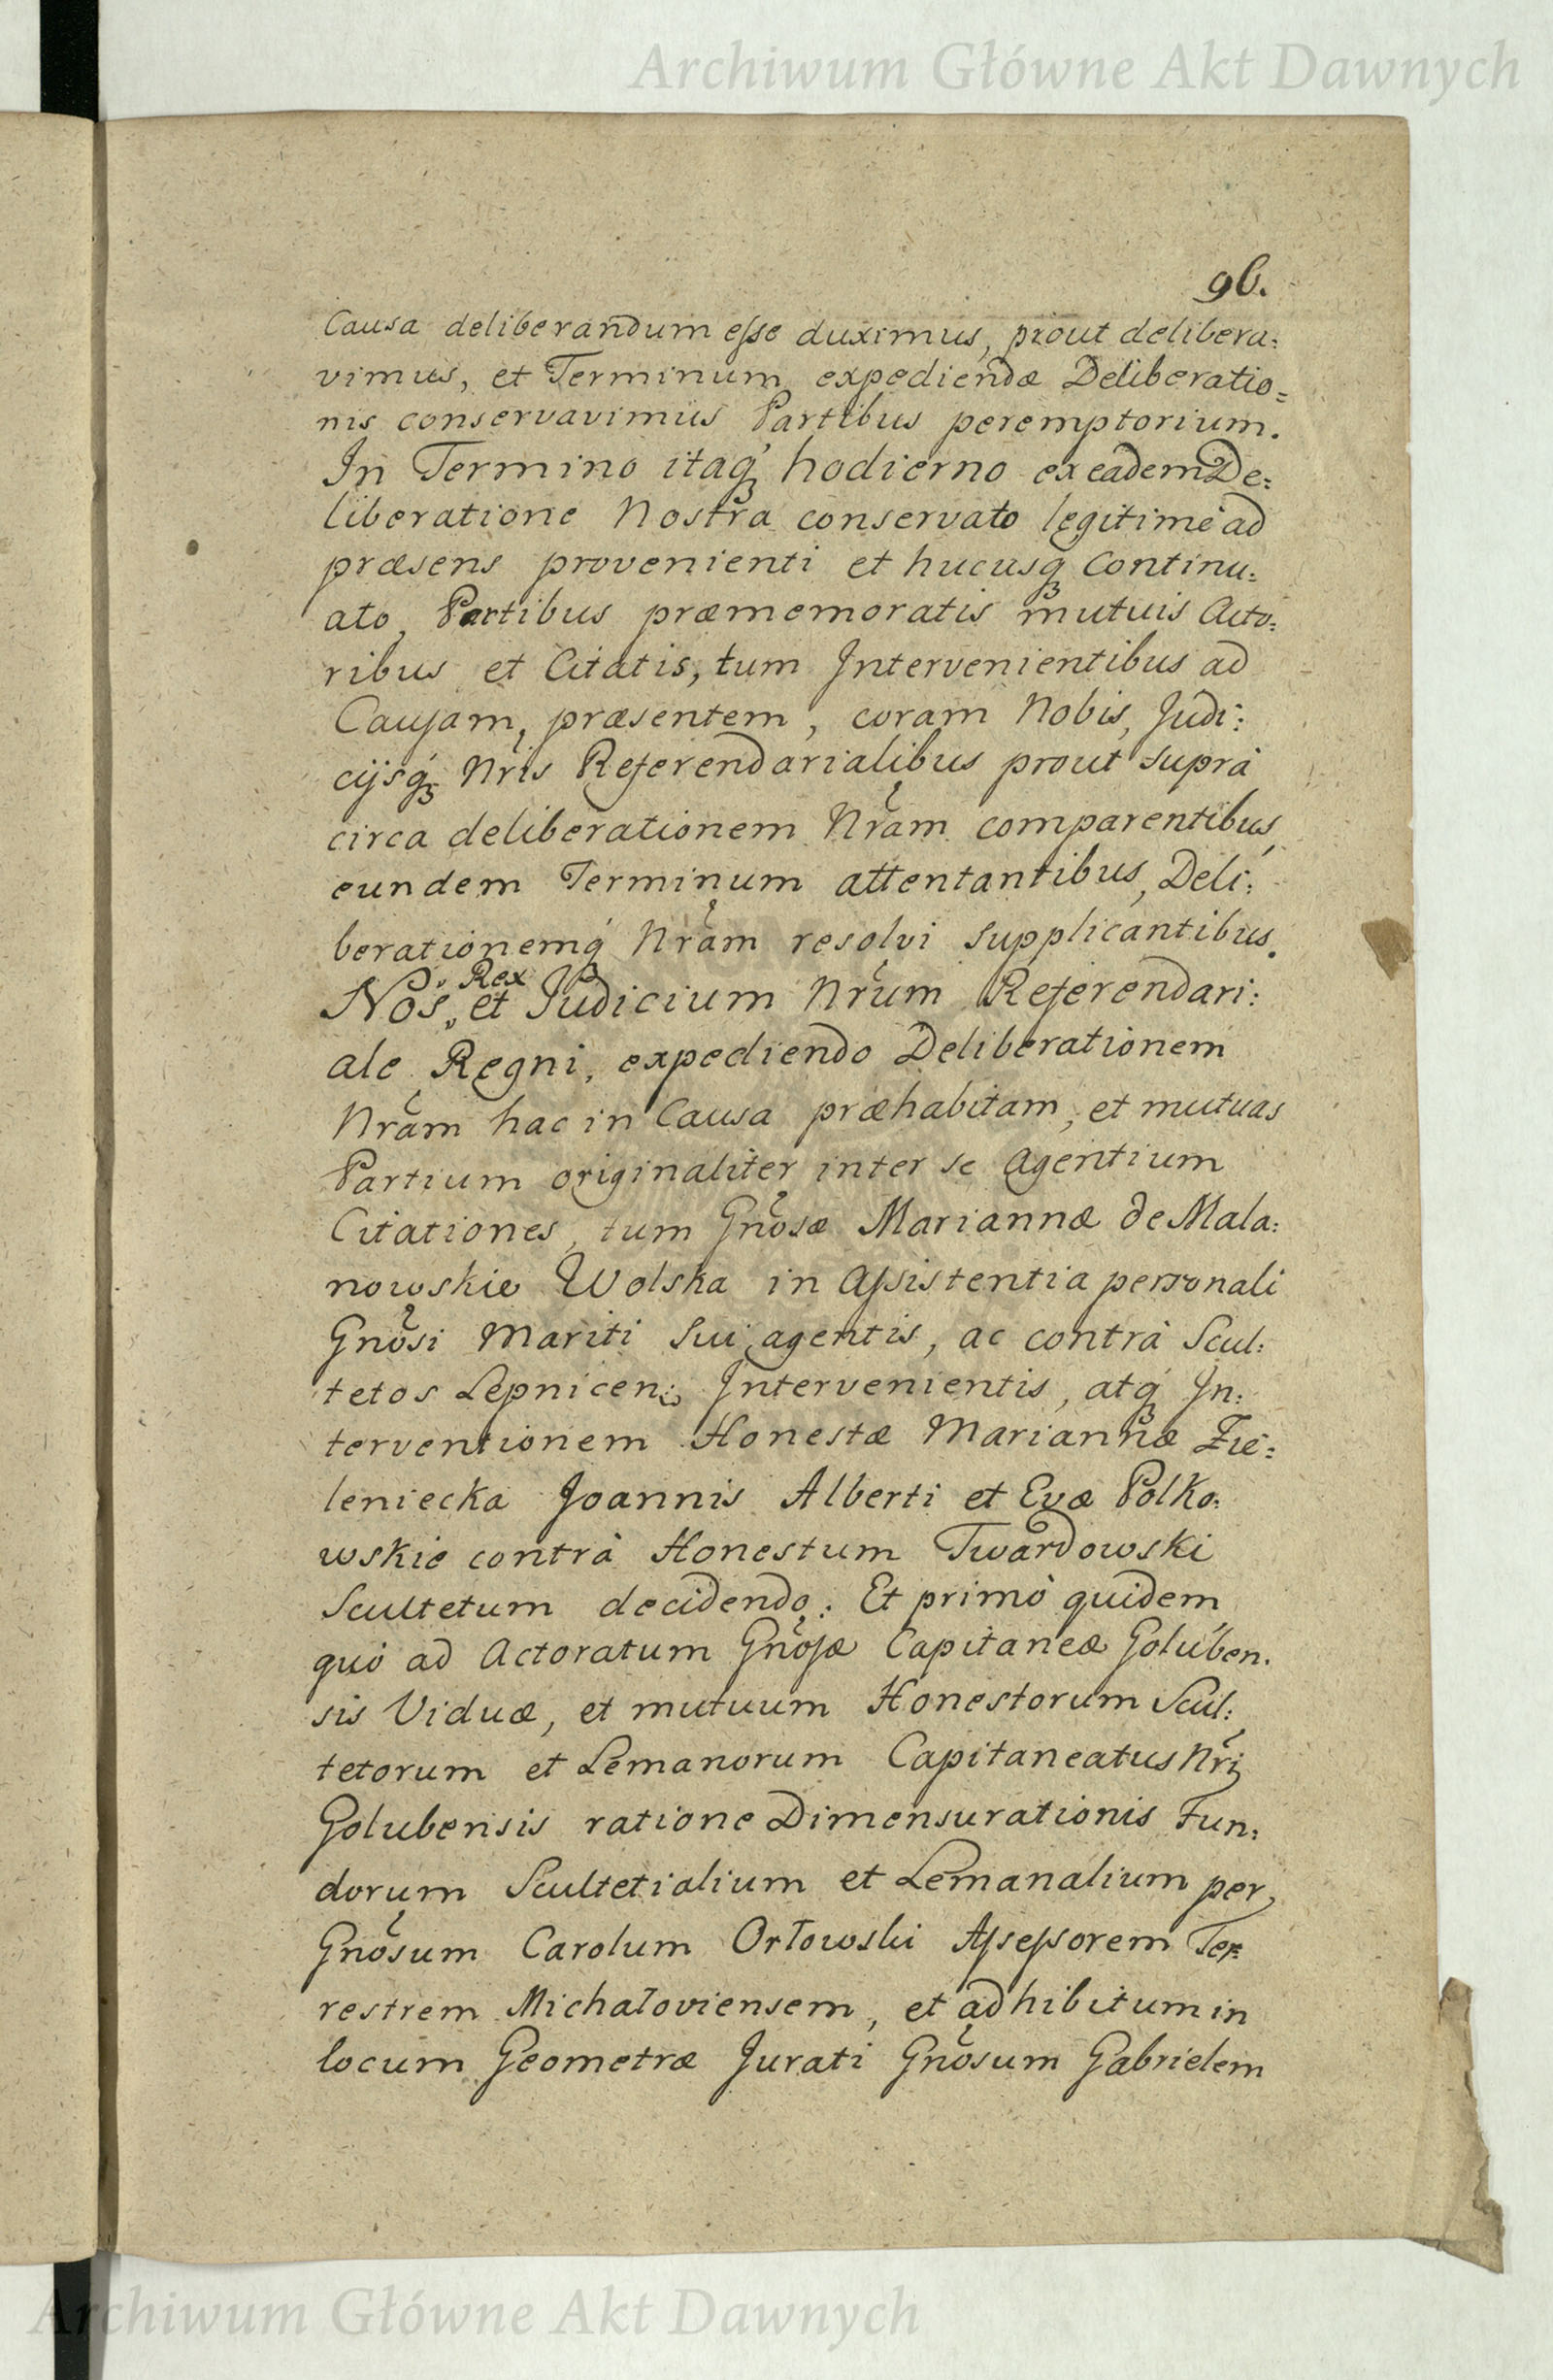 Archiwum Główne Akt Dawnych
96.
Causa deliberandum esse duximus, prout delibera:
vimus, et Terminum expediendæ Deliberatio=
nis conservavimus Partibus peremptorium.
In Termino itaq́ hodierno ex eadem De:
liberatione Nostra conservato legitimè ad
præsens provenienti et hucusq́ Continu:
ato, Partibus præmemoratis mutuis Acto:
ribus et Citatis, tum Intervenientibus ad
Causam, præsentem, coram Nobis, Judi:
cijsq́ Nris Referendarialibus prout suprà
circa deliberationem Nrãm comparentibus,
eundem Terminum attentantibus, Deli:
berationemq́ Nrãm resolvi supplicantibus.
Rex
Nos, et Judicium Nrũm Referendari:
ale Regni, expediendo Deliberationem
Nrãm hac in Causa præhabitam, et mutuas
Partium originaliter inter se Agentium
Citationes, tum Gnõsæ Mariannæ de Mala:
nowskie Wolska in Assistentia personali
Gnõsi Mariti Sui agentis, ac contrà Scul:
tetos Lepnicen: Intervenientis, atq́ In:
terventionem Honestæ Mariannæ Zie:
leniecka Joannis Alberti et Evæ Polko:
wskie contrà Honestum Twardowski
Scultetum decidendo: Et primò quidem
quò ad Actoratum Gnõsæ Capitaneæ Goluben.
sis Viduæ, et mutuum Honestorum Scul:
tetorum et Lemanorum Capitaneatus Nrĩ
Golubensis ratione Dimensurationis Fun:
dorum Scultetialium et Lemanalium per
Gnõsum Carolum Orłowski Assessorem Ter:
restrem Michałoviensem, et adhibitum in
locum Geometræ Jurati Gnõsum Gabrielem
Archiwum Główne Akt Dawnych